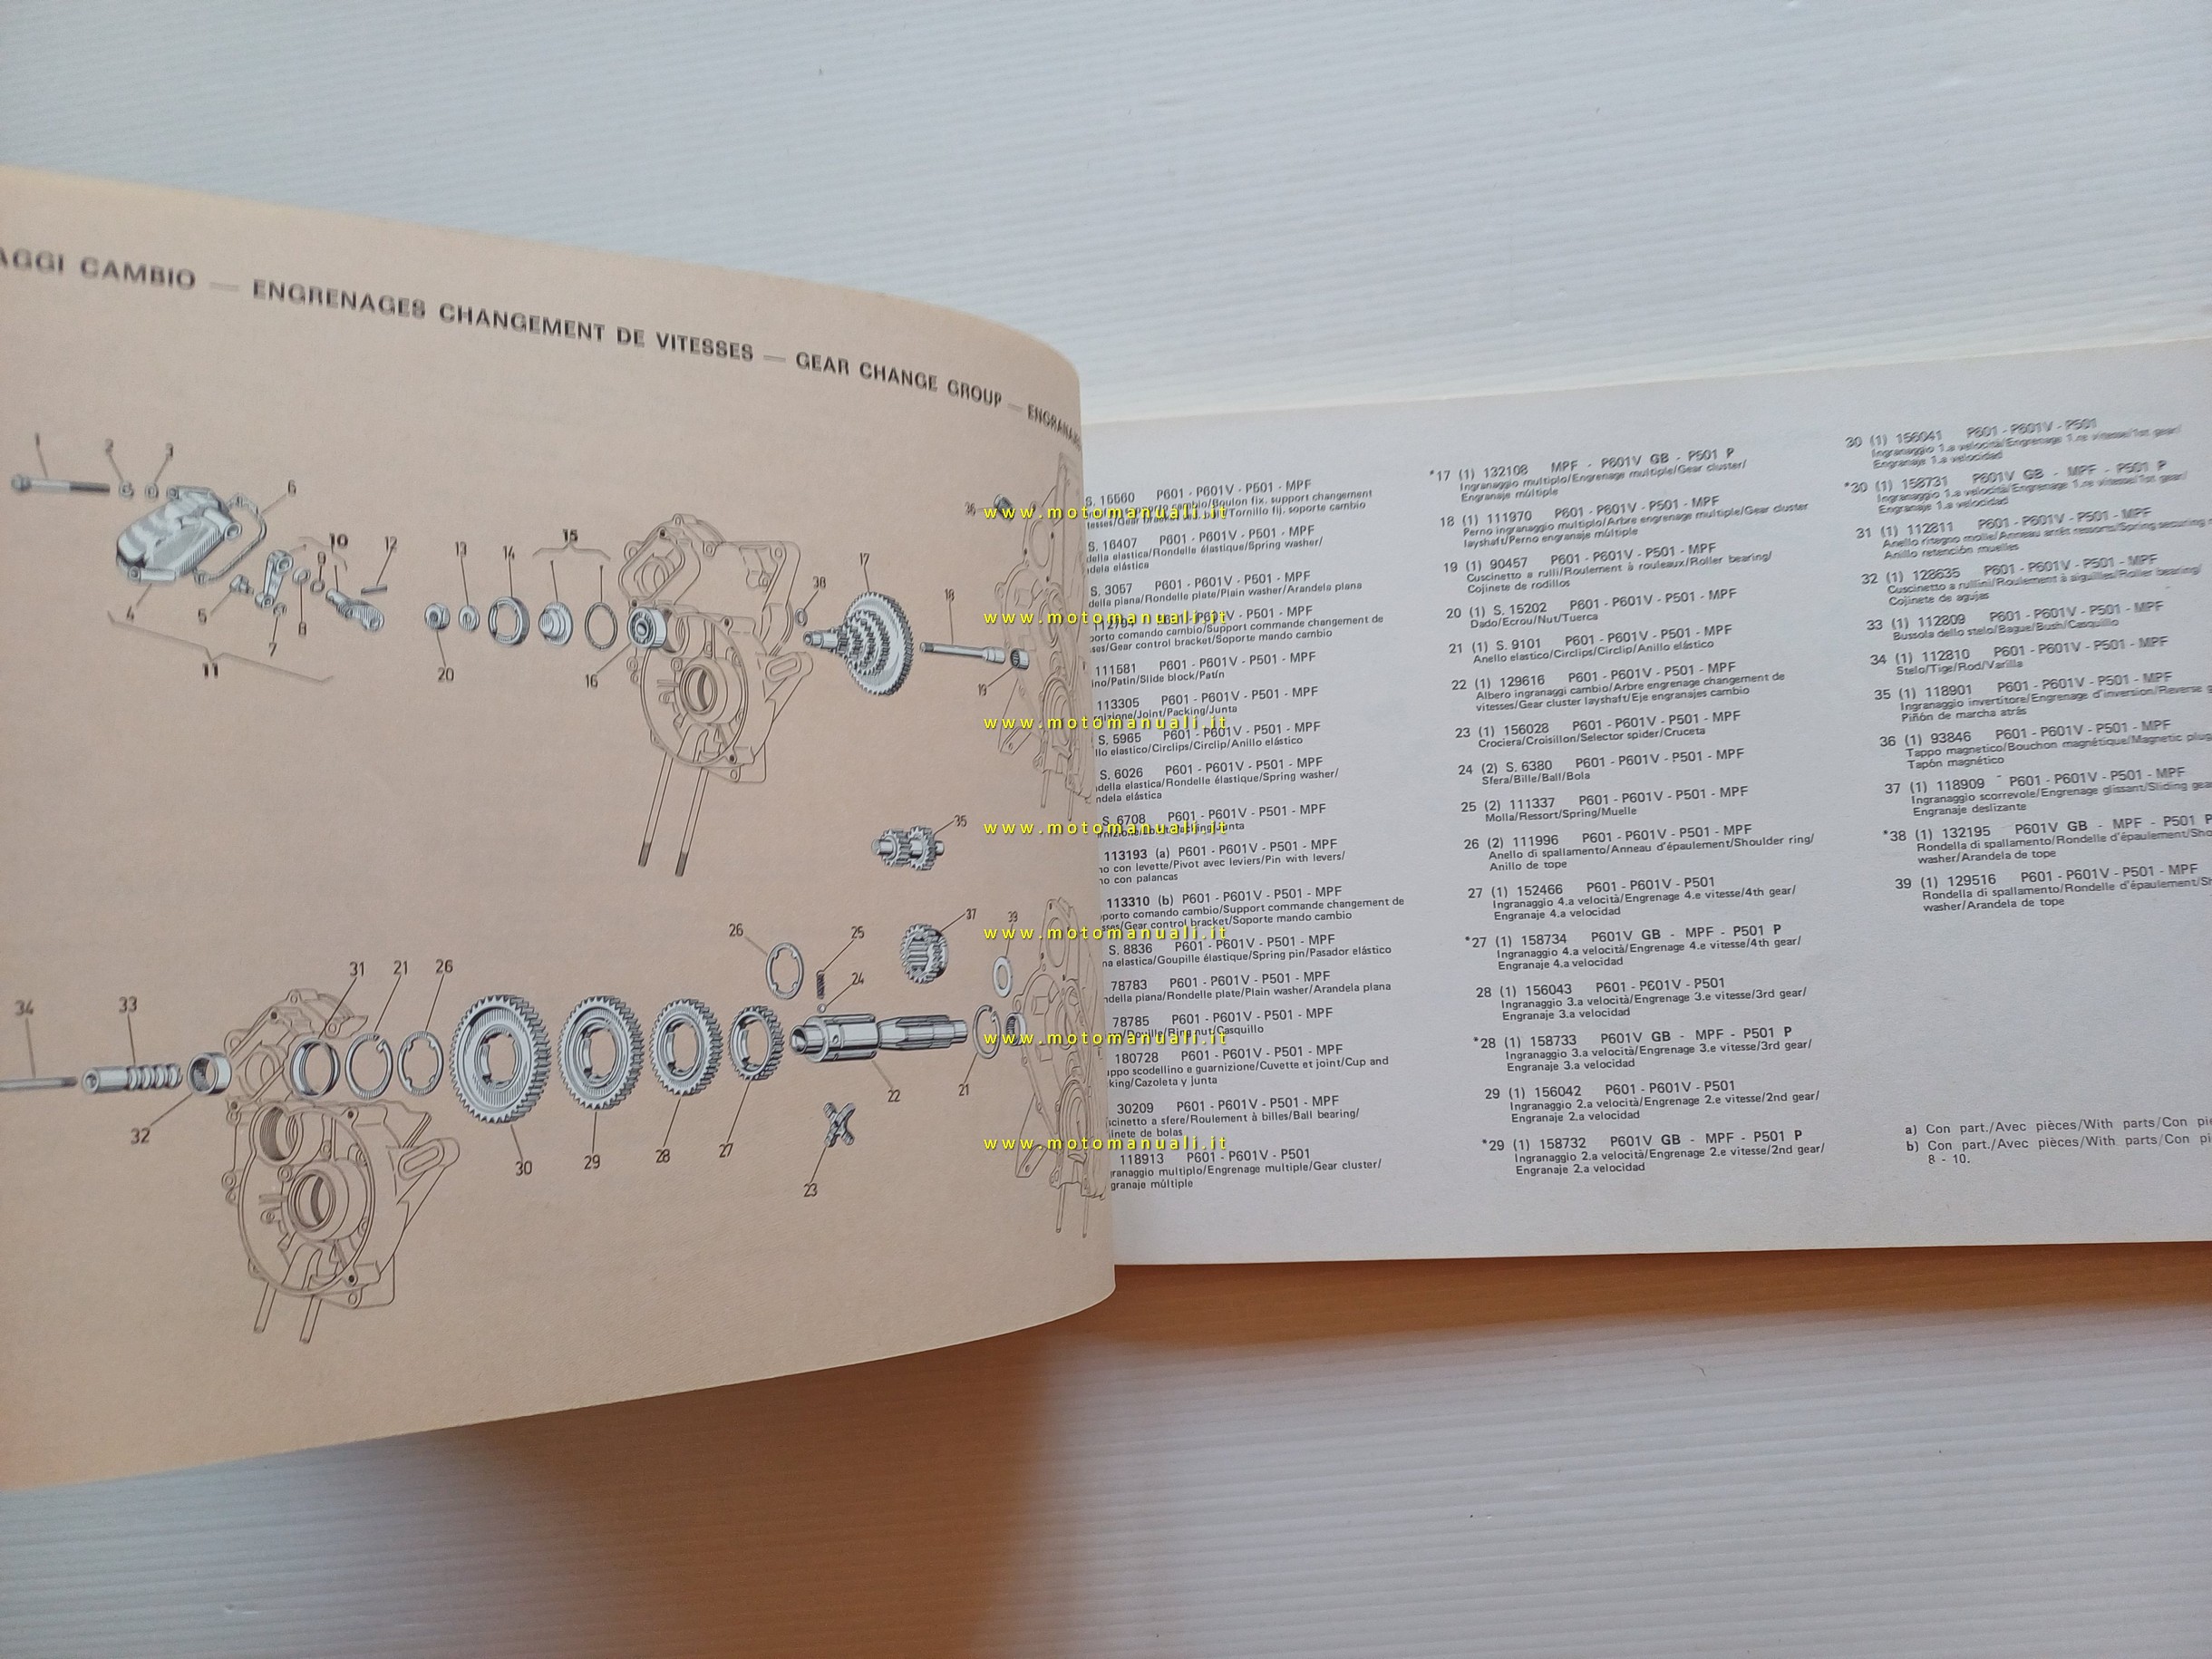 AGGI CAMBIO — ENGRENAGES CHANGEMENT DE VITESSES — GEAR CHANGE GROUP — ENGRANA
1
2
3
6
10
9
12
13
14
15
38
17
18
36
4
5
7
8
11
20
16
19
35
37
39
26
25
24
31
21
26
34
33
32
30
29
28
27
22
21
23
S. 15560 P601 - P601V - P501 - MPF
porto cambio/Boulon fix. support changement
tesses/Gear bracket bolt/Tornillo fij. soporte cambio
S. 16407 P601 - P601V - P501 - MPF
della elastica/Rondelle élastique/Spring washer/
dela elástica
S. 3057 P601 - P601V - P501 - MPF
della piana/Rondelle plate/Plain washer/Arandela plana
P601 - P601V - P501 - MPF
porto comando cambio/Support commande changement de
ses/Gear control bracket/Soporte mando cambio
111581 P601 - P601V - P501 - MPF
ino/Patin/Slide block/Patín
113305 P601 - P601V - P501 - MPF
rnizione/Joint/Packing/Junta
S. 5965 P601 - P601V - P501 - MPF
llo elastico/Circlips/Circlip/Anillo elástico
S. 6026 P601 - P601V - P501 - MPF
ndella elastica/Rondelle élastique/Spring washer/
ndela elástica
S. 6708 P601 - P601V - P501 - MPF
113193 (a) P601 - P601V - P501 - MPF
no con levette/Pivot avec leviers/Pin with levers/
no con palancas
113310 (b) P601 - P601V - P501 - MPF
porto comando cambio/Support commande changement de
sses/Gear control bracket/Soporte mando cambio
S. 8836 P601 - P601V - P501 - MPF
na elastica/Goupille élastique/Spring pin/Pasador elástico
78783 P601 - P601V - P501 - MPF
ndella piana/Rondelle plate/Plain washer/Arandela plana
78785 P601 - P601V - P501 - MPF
/Douille/Ring nut/Casquillo
180728 P601 - P601V - P501 - MPF
uppo scodellino e guarnizione/Cuvette et joint/Cup and
king/Cazoleta y junta
30209 P601 - P601V - P501 - MPF
scinetto a sfere/Roulement à billes/Ball bearing/
jinete de bolas
118913 P601 - P601V - P501
granaggio multiplo/Engrenage multiple/Gear cluster/
granaje múltiple
*17 (1) 132108 MPF - P601V GB - P501 P
Ingranaggio multiplo/Engrenage multiple/Gear cluster/
Engranaje múltiple
18 (1) 111970 P601 - P601V - P501 - MPF
Perno ingranaggio multiplo/Arbre engrenage multiple/Gear cluster
layshaft/Perno engranaje múltiple
19 (1) 90457 P601 - P601V - P501 - MPF
Cuscinetto a rulli/Roulement à rouleaux/Roller bearing/
Cojinete de rodillos
20 (1) S. 15202 P601 - P601V - P501 - MPF
Dado/Ecrou/Nut/Tuerca
21 (1) S. 9101 P601 - P601V - P501 - MPF
Anello elastico/Circlips/Circlip/Anillo elástico
22 (1) 129616 P601 - P601V - P501 - MPF
Albero ingranaggi cambio/Arbre engrenage changement de
vitesses/Gear cluster layshaft/Eje engranajes cambio
23 (1) 156028 P601 - P601V - P501 - MPF
Crociera/Croisillon/Selector spider/Cruceta
24 (2) S. 6380 P601 - P601V - P501 - MPF
Sfera/Bille/Ball/Bola
25 (2) 111337 P601 - P601V - P501 - MPF
Molla/Ressort/Spring/Muelle
26 (2) 111996 P601 - P601V - P501 - MPF
Anello di spallamento/Anneau d'épaulement/Shoulder ring/
Anillo de tope
27 (1) 152466 P601 - P601V - P501
Ingranaggio 4.a velocità/Engrenage 4.e vitesse/4th gear/
Engranaje 4.a velocidad
*27 (1) 158734 P601V GB - MPF - P501 P
Ingranaggio 4.a velocità/Engrenage 4.e vitesse/4th gear/
Engranaje 4.a velocidad
28 (1) 156043 P601 - P601V - P501
Ingranaggio 3.a velocità/Engrenage 3.e vitesse/3rd gear/
Engranaje 3.a velocidad
*28 (1) 158733 P601V GB - MPF - P501 P
Ingranaggio 3.a velocità/Engrenage 3.e vitesse/3rd gear/
Engranaje 3.a velocidad
29 (1) 156042 P601 - P601V - P501
Ingranaggio 2.a velocità/Engrenage 2.e vitesse/2nd gear/
Engranaje 2.a velocidad
*29 (1) 158732 P601V GB - MPF - P501 P
Ingranaggio 2.a velocità/Engrenage 2.e vitesse/2nd gear/
Engranaje 2.a velocidad
30 (1) 156041 P601 - P601V - P501
Ingranaggio 1.a velocità/Engrenage 1.re vitesse/1st gear/
Engranaje 1.a velocidad
*30 (1) 158731 P601V GB - MPF - P501 P
Ingranaggio 1.a velocità/Engrenage 1.re vitesse/1st gear/
Engranaje 1.a velocidad
31 (1) 112811 P601 - P601V - P501 - MPF
Anello ritegno molle/Anneau arrêt ressorts/Spring securing
Anillo retención muelles
32 (1) 128635 P601 - P601V - P501 - MPF
Cuscinetto a rullini/Roulement à aiguilles/Roller bearing/
Cojinete de agujas
33 (1) 112809 P601 - P601V - P501 - MPF
Bussola dello stelo/Bague/Bush/Casquillo
34 (1) 112810 P601 - P601V - P501 - MPF
Stelo/Tige/Rod/Varilla
35 (1) 118901 P601 - P601V - P501 - MPF
Ingranaggio invertitore/Engrenage d'inversion/Reverse g
Piñón de marcha atrás
36 (1) 93846 P601 - P601V - P501 - MPF
Tappo magnetico/Bouchon magnétique/Magnetic plug
Tapón magnético
37 (1) 118909 P601 - P601V - P501 - MPF
Ingranaggio scorrevole/Engrenage glissant/Sliding gea
Engranaje deslizante
*38 (1) 132195 P601V GB - MPF - P501 P
Rondella di spallamento/Rondelle d'épaulement/Sho
washer/Arandela de tope
39 (1) 129516 P601 - P601V - P501 - MPF
Rondella di spallamento/Rondelle d'épaulement/S
washer/Arandela de tope
a) Con part./Avec pièces/With parts/Con pi
b) Con part./Avec pièces/With parts/Con pi
8 - 10.
www.motomanuali.it
www.motomanuali.it
www.motomanuali.it
www.motomanuali.it
www.motomanuali.it
www.motomanuali.it
www.motomanuali.it